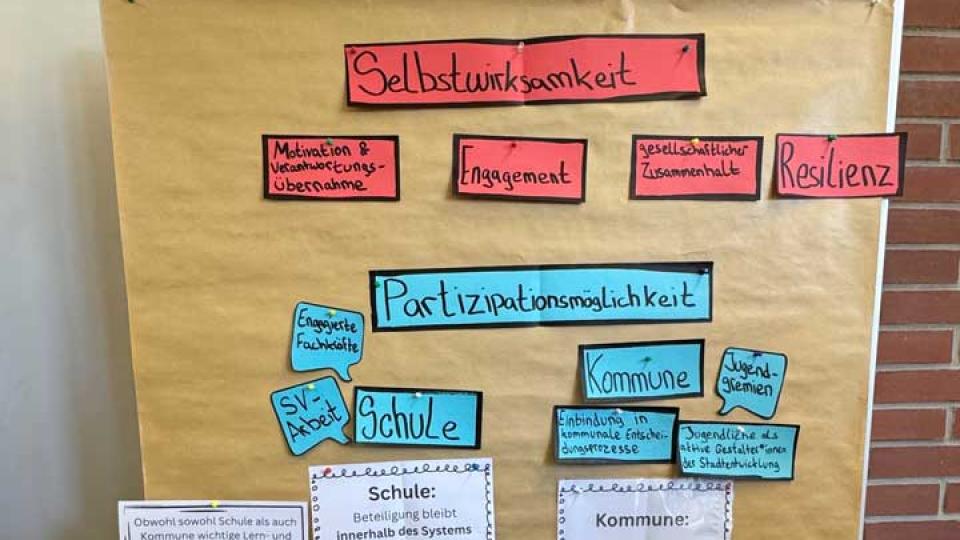 Selbstwirksamkeit
Motivation &
Verantwortungs-
übernahme
Engagement
gesellschaftlicher
Zusammenhalt
Resilienz
Partizipationsmöglichkeit
Engagierte
Fachkräfte
SV-
Arbeit
Schule
Kommune
Jugend-
gremien
Einbindung in
kommunale Entschei-
dungsprozesse
Jugendliche als
aktive Gestalter*innen
der Stadtentwicklung
Obwohl sowohl Schule als auch
Kommune wichtige Lern- und
Schule:
Beteiligung bleibt
innerhalb des Systems
Kommune: